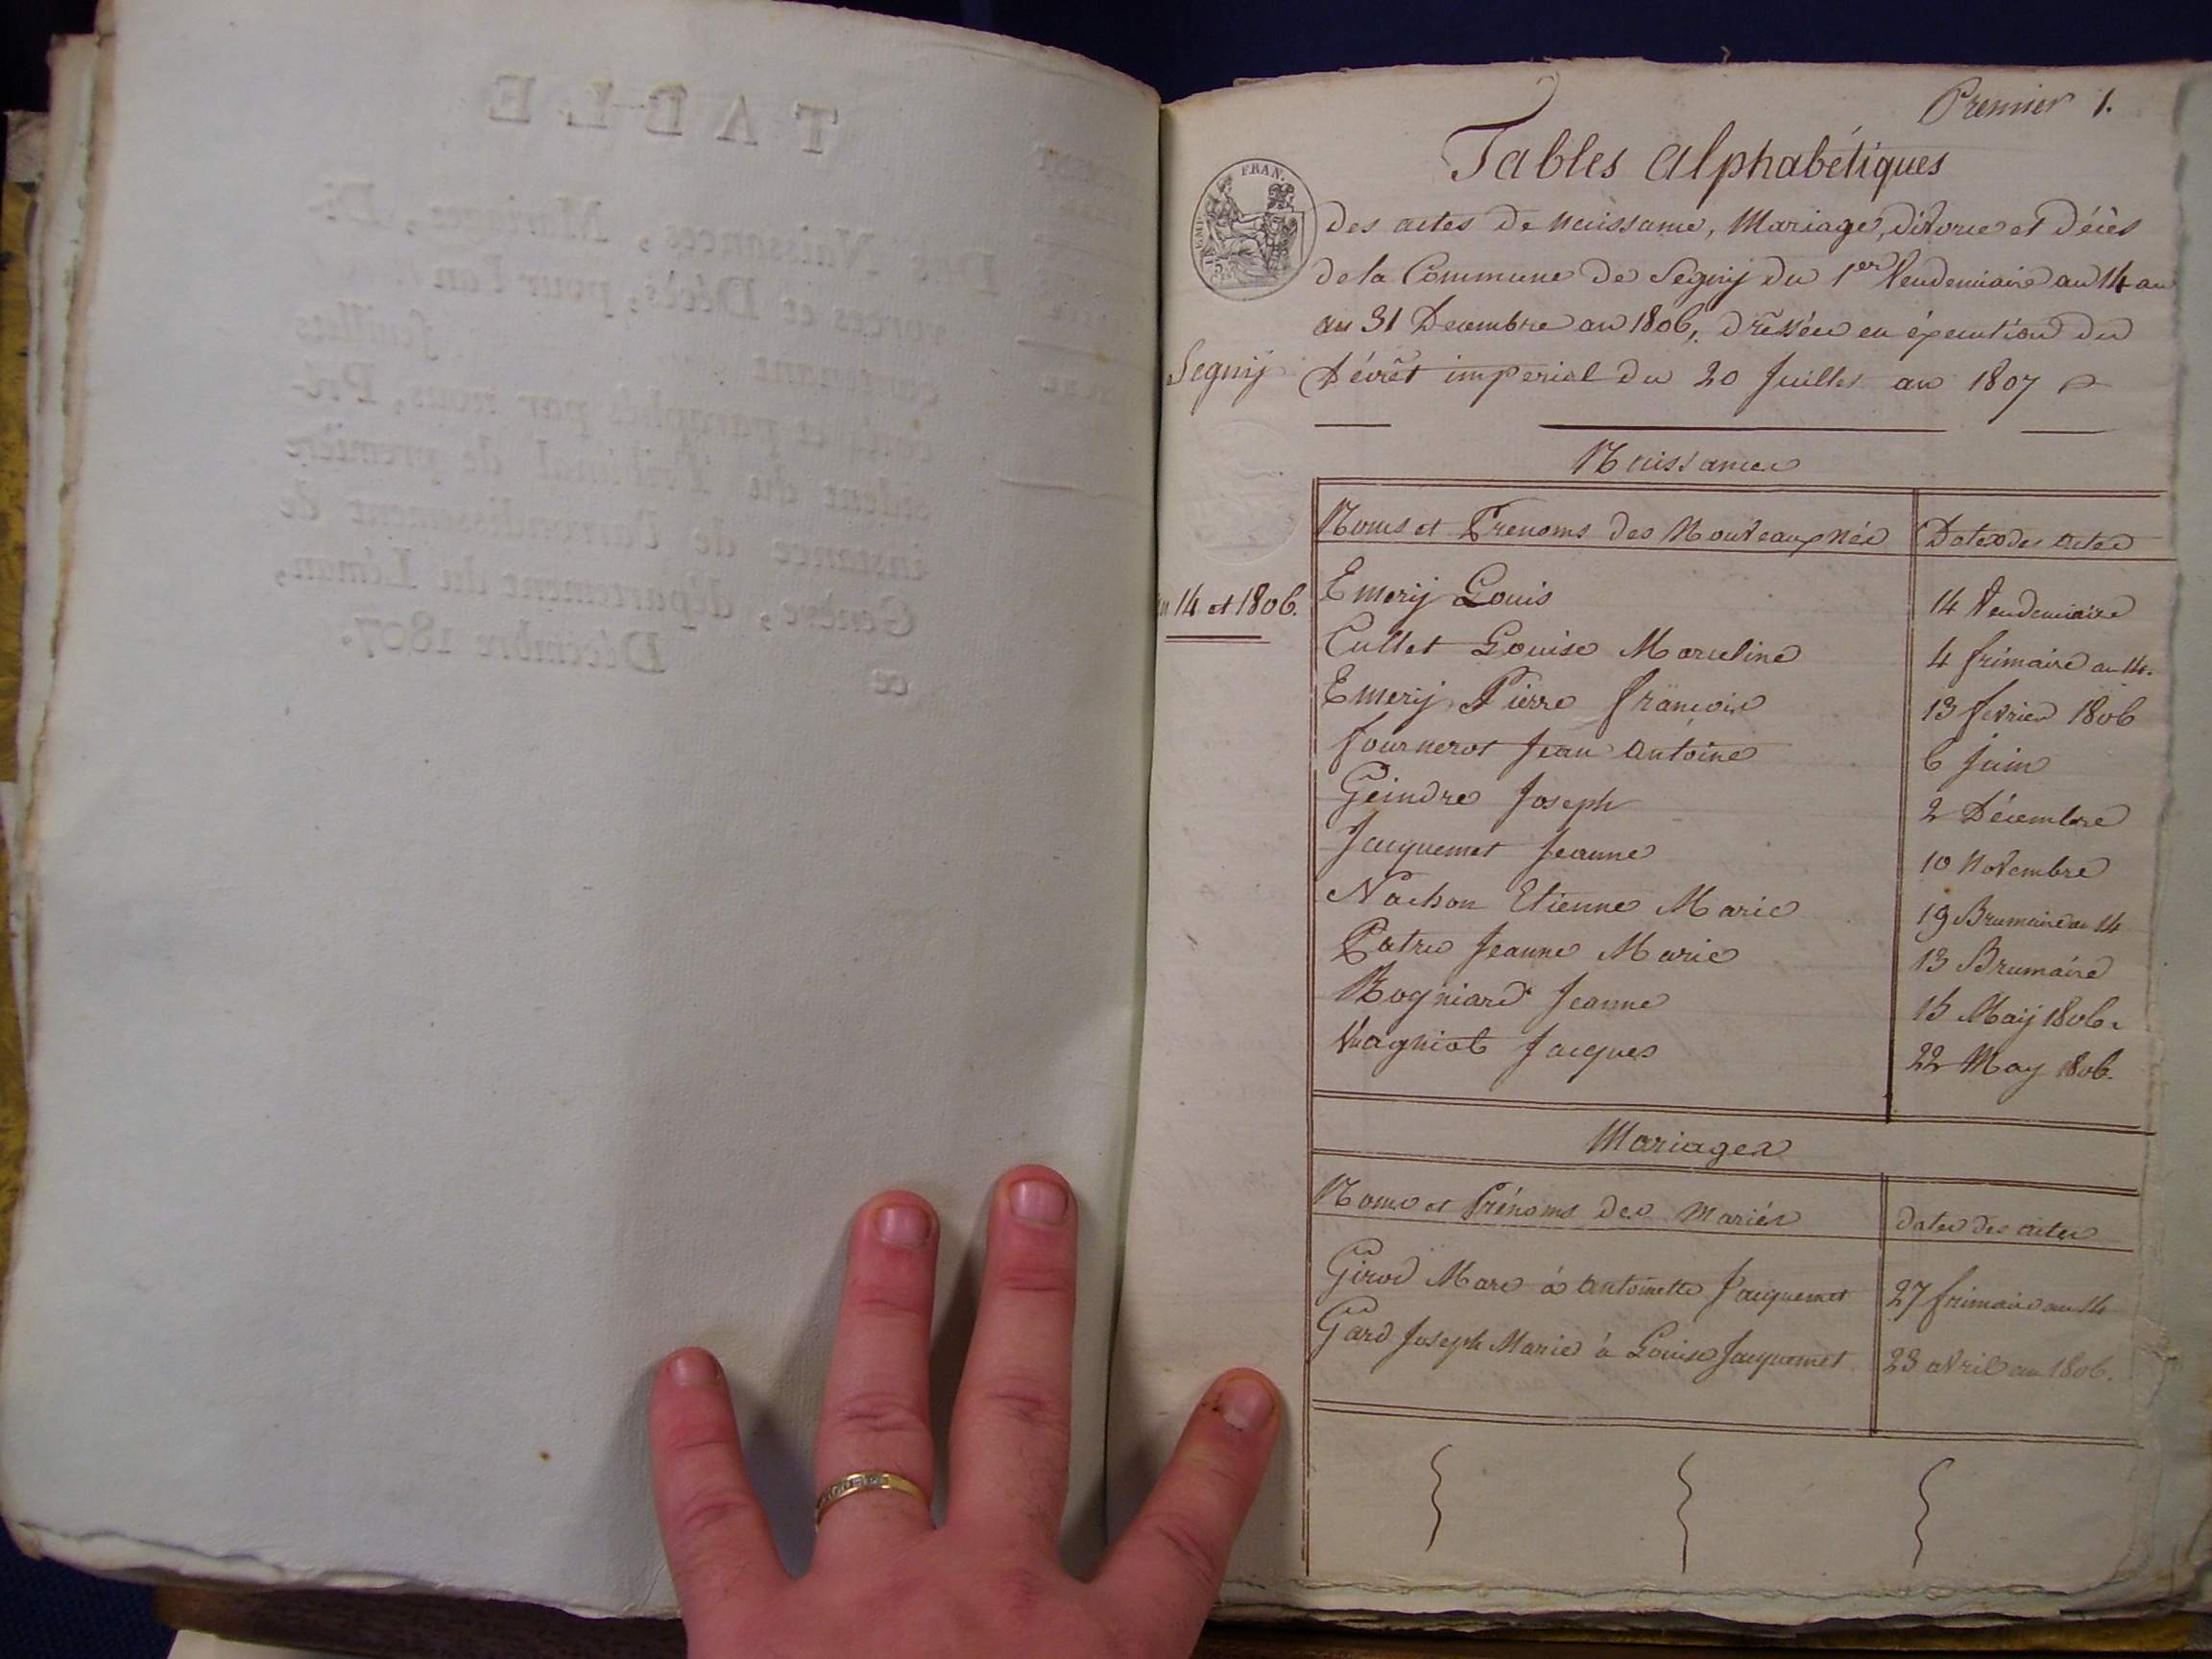 TABLE
Des Naissances, Mariages, Di-
vorces et Décès, pour l'an
contenant feuillets
coté et paraphés par nous, Pré-
sident du Tribunal de première
instance de l'arrondissement de
Genève, département du Léman,
ce Décembre 1807.
Premier 1.
Tables alphabétiques
FRAN.
EMP.
des actes de naissance, Mariage, divorce et décès
de la Commune de Segnÿ du 1er Vendemiaire an 14 au
au 31 Decembre an 1806, dressées en éxecution du
Segnÿ
Décrêt imperial du 20 Juillet an 1807
Naissances
Noms et Prenoms des Nouveaux Nés
Dates des actes
an 14 et 1806.
Emerÿ Louis
14 Vendemiaire
Cullet Louise Marceline
4 frimaire an 14.
Emerÿ Pierre françois
13 fevrier 1806
fournerot Jean antoine
6 Juin
Geindre Joseph
2 Décembre
Jacquemet Jeanne
10 Novembre
Nachon Etienne Marie
19 Brumaire an 14
Patru Jeanne Marie
13 Brumaire
Rogniard Jeanne
15 Maÿ 1806.
Vuagniat Jacques
22 May 1806.
Mariages
Noms et Prénoms des Mariés
dates des actes
Girod Marc à antoinette Jacquemet
27 frimaire an 14
Gard Joseph Marie à Louise Jacquemet
23 avril an 1806.